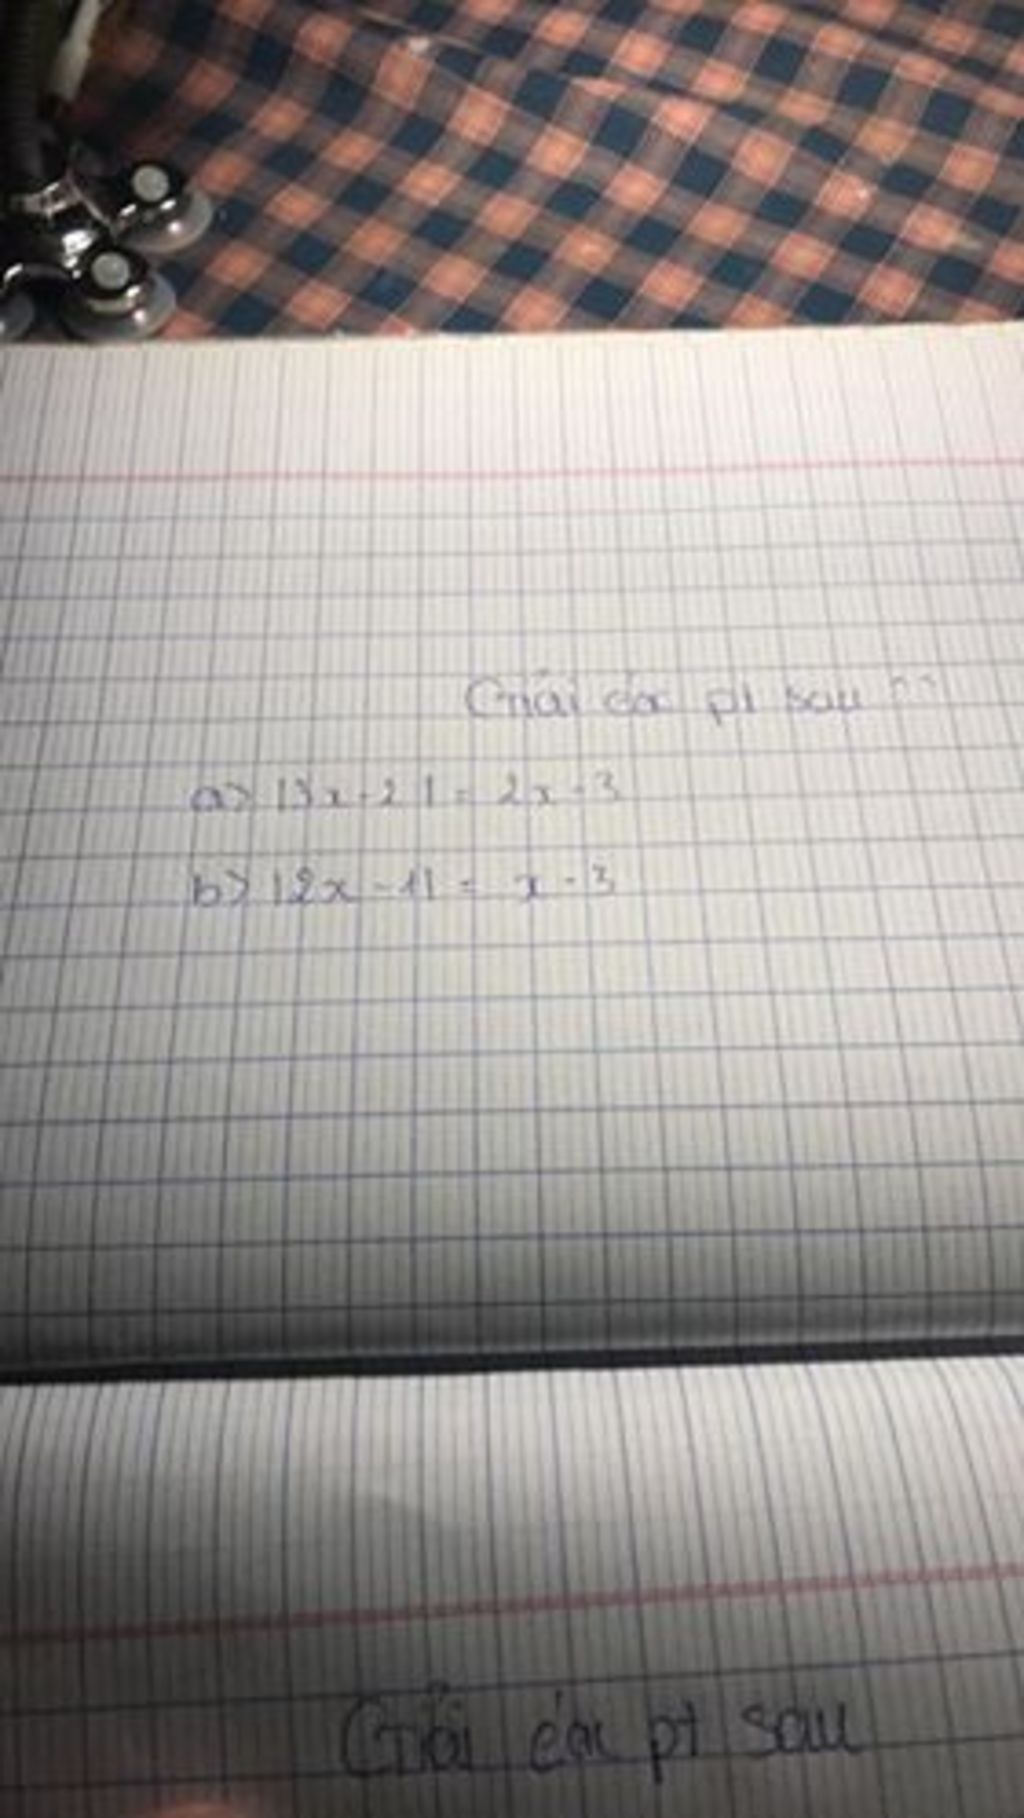 Giải các pt sau ^^
a> |3x-2| = 2x-3
b> |2x-1| = x-3
Giải các pt sau